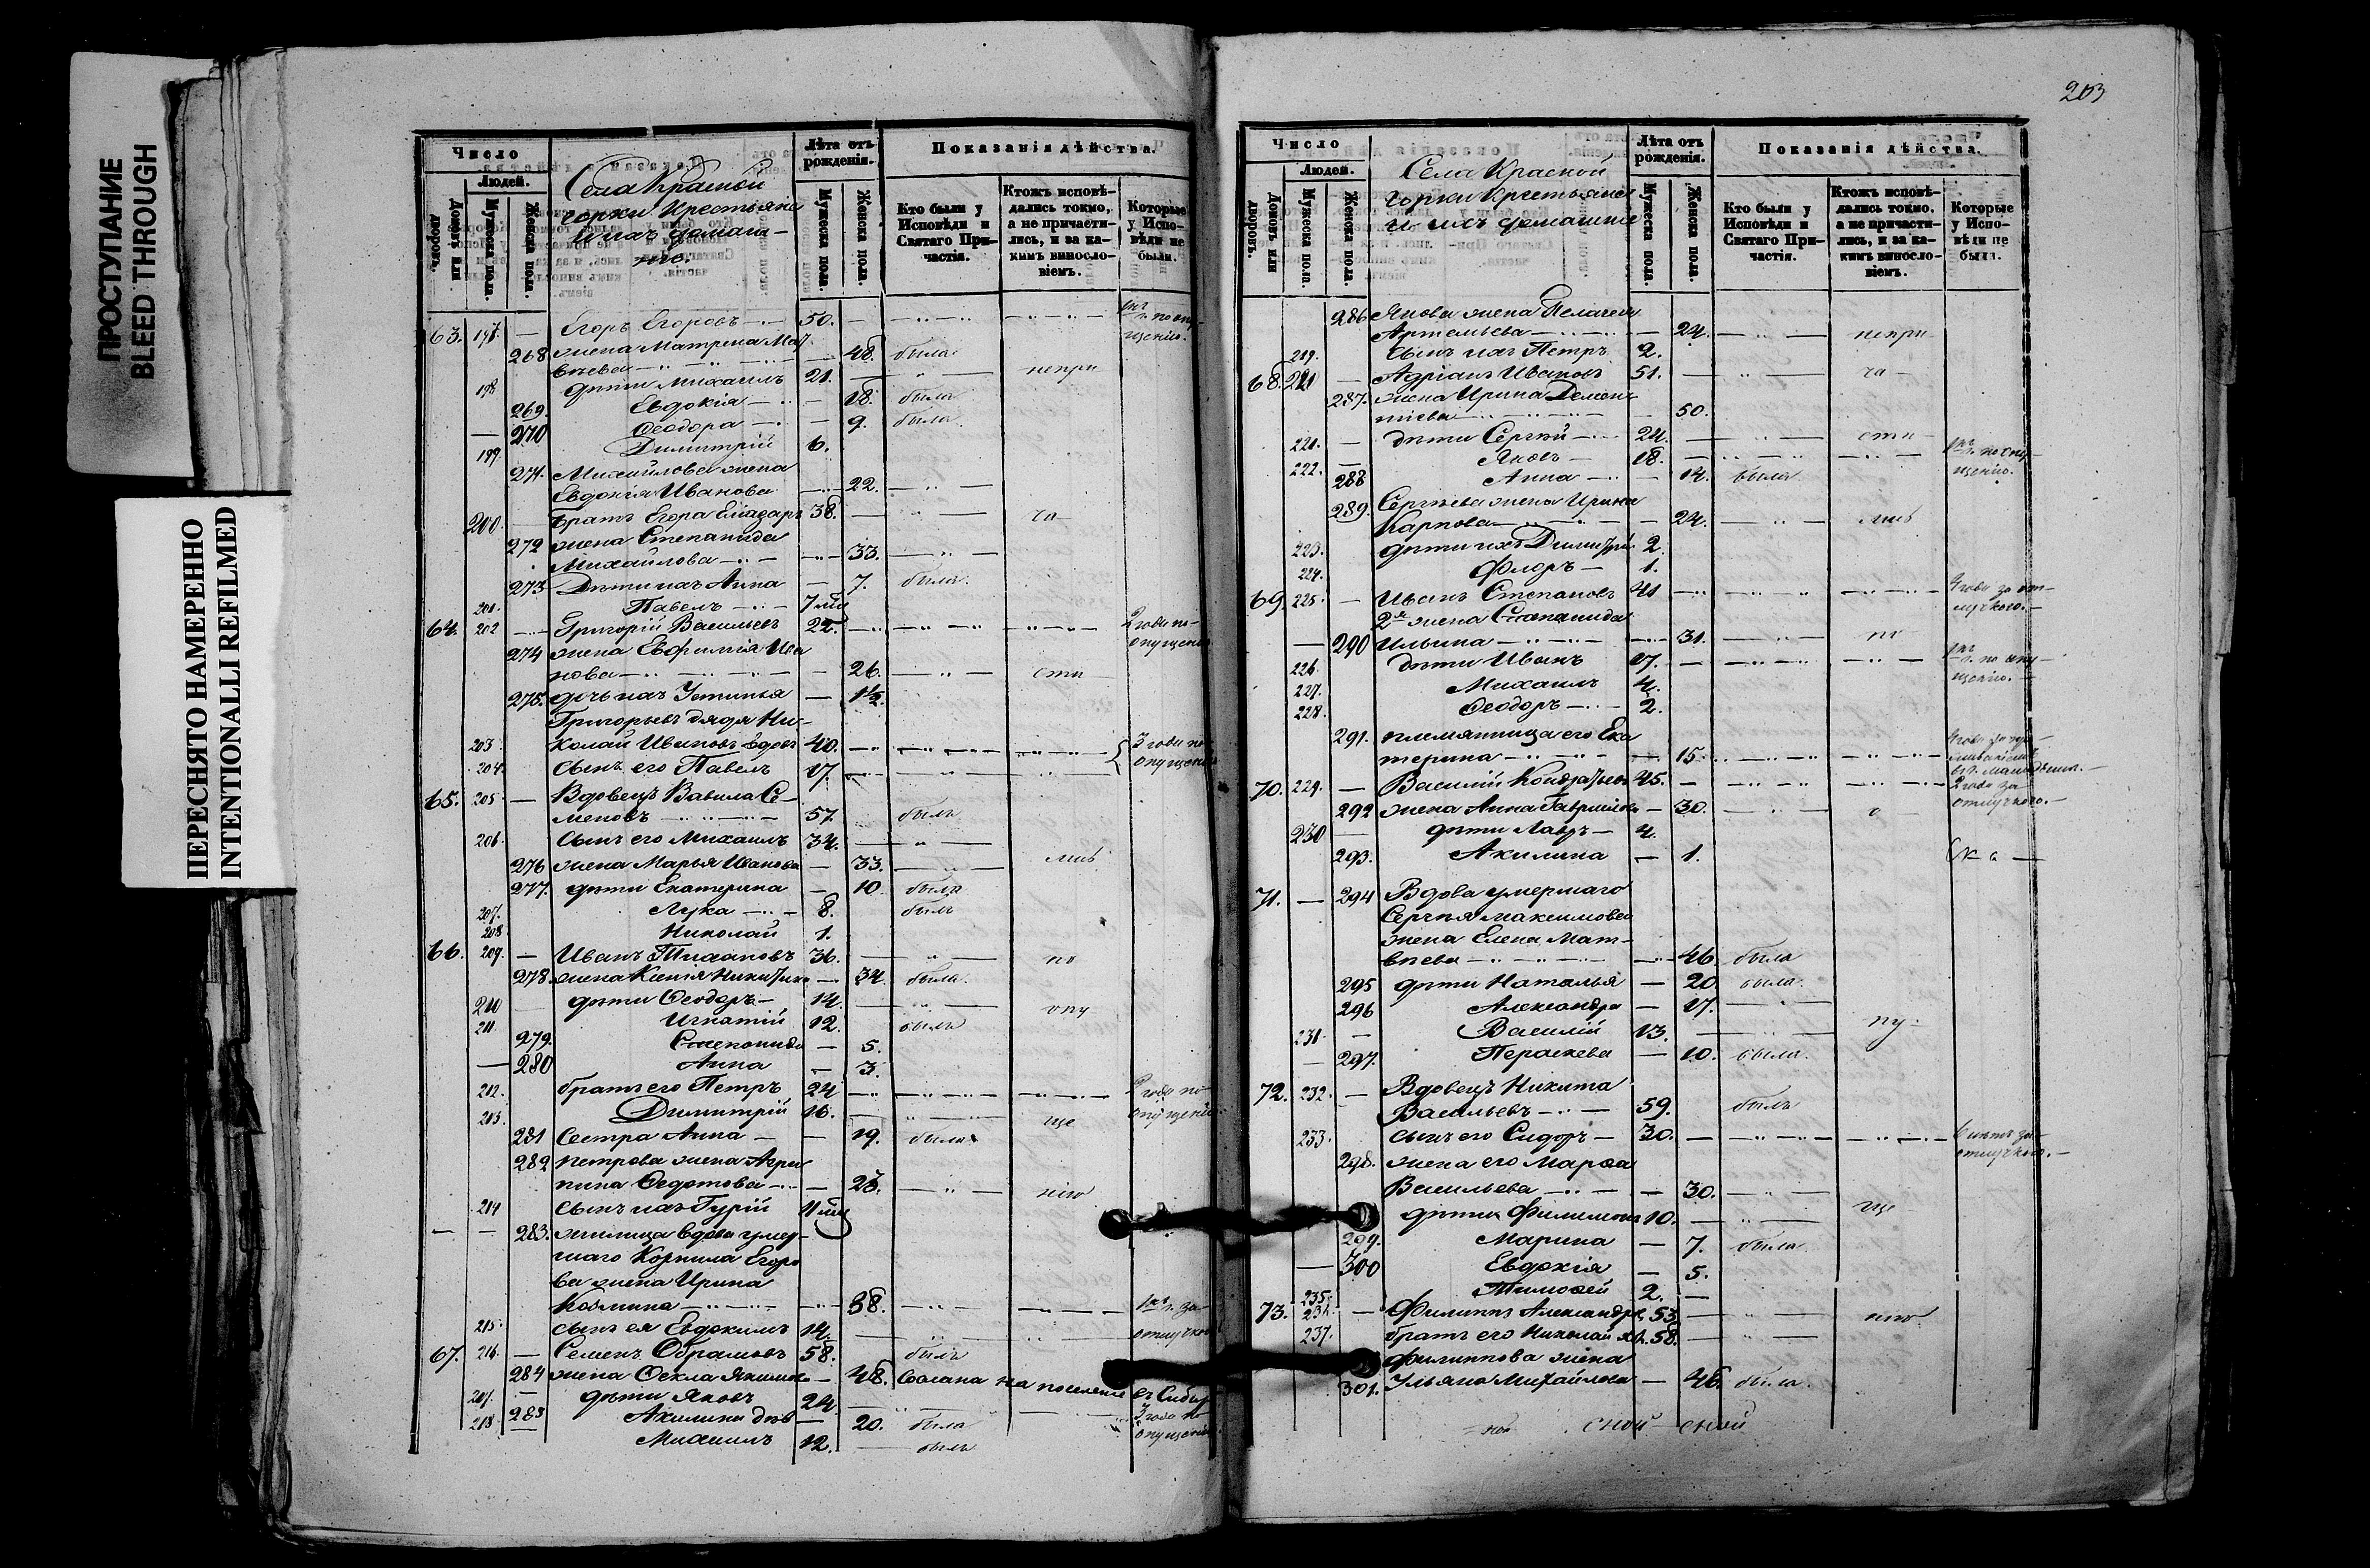 ПРОСТУПАНИЕ
BLEED THROUGH
ПЕРЕСНЯТО НАМЕРЕННО
INTENTIONALLI REFILMED
Число
Людей.
Домовъ или дворовъ.
Мужеска пола.
Женска пола.
Села Красной
горки Крестьяне
и ихъ домаш-
Лѣта отъ рожденія.
Мужеска пола.
Женска пола.
Показанія дѣйства.
Кто были у Исповѣди и Святаго Причастія.
Ктожъ исповѣ-
дались токмо,
а не причасти-
лись, и за ка-
кимъ винослo-
віемъ.
Которые
у Испо-
вѣди не
были.
63. 197. — Егоръ Егоровъ — 50.
268 жена Матрена Мат
вѣева — 48. была
198 дѣти Михаилъ 21. непри
269. Евдокія — 18. была
270 Ѳеодора — 9. была
199. Димитрій 6.
271. Михайлова жена
Евдокія Иванова — 22.
200. братъ Егора Елiазаръ 38. ча
272 жена Степанида
Михайлова — 33.
273 Дѣти ихъ Анна — 7. была.
201. Павелъ — 7 мѣ
64. 202 — Григорій Васильевъ 22. 2 года по
опущенію
274 жена Евфимія Ива
нова — 26. сти
275. дочь ихъ Устинья — 1½.
Григорьевъ дядя Ни-
203. колай Ивановъ вдовъ 40. 3 года по
204. сынъ его Павелъ 17. опущенію
65. 205 — Вдовецъ Вавила Се-
меновъ — 57. былъ
206. сынъ его Михаилъ 34.
276 жена Марья Иванова — 33. лиь
277. дѣти Екатерина — 10. была
207. Лука — 8. былъ
208 Николай 1.
66. 209. — Иванъ Тихановъ 36. по
278. жена Ксенія Никитина — 34. была.
210 дѣти Ѳеодоръ — 14. опу
211 Игнатій 12. былъ
279. Степанида — 5.
280 Анна — 3.
212. братъ его Петръ 24 2 года по
213. Димитрій 16. ще опущенію
281 Сестра Анна — 19. была
282 петрова жена Агри
пина Ѳедотова — 28. нiю
214 сынъ ихъ Гурій 11 мѣ
283. жилица вдова умер-
шаго Корнила Егоро
ва жена Ирина
Козмина — 38.
215. сынъ ея Евдокимъ 14. отлучкою
67. 216. — Семенъ Абрамовъ 58. былъ
284 жена Ѳекла Якимова — 48. Сослана на поселеніе въ Сибирь
217. дѣти Яковъ 24. 3 года по
285 Акилина дѣв — 20. была опущенію
218 Михаилъ 12. былъ
203
Число
Людей.
Домовъ или дворовъ.
Мужеска пола.
Женска пола.
Села Красной
горки Крестьяне
и ихъ домашніе
Лѣта отъ рожденія.
Мужеска пола.
Женска пола.
Показанія дѣйства.
Кто были у Исповѣди и Святаго Причастія.
Ктожъ исповѣ-
дались токмо,
а не причасти-
лись, и за ка-
кимъ винослo-
віемъ.
Которые
у Испо-
вѣди не
были.
286 Якова жена Пелагея
Артемьева — 24. непри
219. сынъ ихъ Петръ 2.
68. 220 — Адріанъ Ивановъ 51. ча
287. жена Ирина Демен
тіева — 50.
221. — дѣти Сергѣй — 24. сти
222. — Яковъ — 18. по опу-
щенію.
288 Анна — 14. была
289. Сергѣева жена Ирина
Карпова — 24. лиь
223. дѣти ихъ Димитрій 2.
224. Флоръ — 1.
69. 225. — Иванъ Степановъ 41 4 года за от-
лучкою.
2я жена Степанида
290 Ильина — 31. по
226 дѣти Иванъ 17. по опу-
227. Михаилъ 4. щенію.
228. Ѳеодоръ — 2.
291. племянница его Ека
терина — 15.
70. 229. — Василій Кондратьевъ 45. 2 года за
292 жена Анна Гаврилова — 30. о отлучкою.
230 — дѣти Лавръ — 4.
293. Акилина — 1.
71. — 294 Вдова умершаго
Сергѣя Максимова
жена Елена Мат-
вѣева — 46. была
295 дѣти Наталья — 20. была.
296 Александра — 17.
231. — Василій 13. пу-
297. Параскева — 10. была.
72. 232. — Вдовецъ Никита
Васильевъ — 59. былъ
233. сынъ его Сидоръ — 30. 6 лѣтъ за
отлучкою.
298. жена его Марѳа
Васильева — 30.
дѣти Филимонъ 10. ще
299. Марина — 7. была.
300 Евдокія — 5.
235. Тимоѳей 2.
73. 236. — Филиппъ Александр. 53. нію.
237. братъ его Николай 58.
Филиппова жена
301. Ульяна Михайлова — 46. была.
ной сной сной